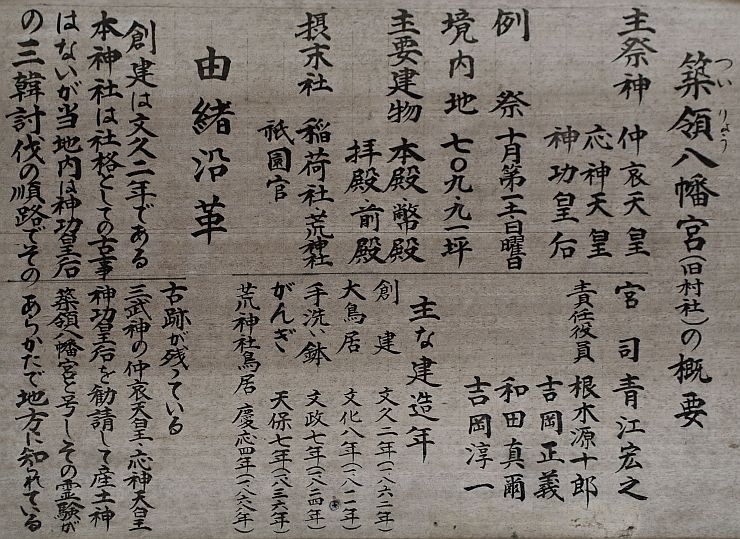 築領八幡宮(旧村社)の概要
つい りょう
主祭神 仲哀天皇
応神天皇
神功皇后
例祭 十月第一土・日曜日
境内地 七〇九・九一坪
主要建物 本殿 幣殿
拝殿 前殿
摂末社 稲荷社 荒神社
祇園宮
由緒沿革
創建は文久二年である
本神社は社格としての古事
はないが当地内は神功皇后
の三韓討伐の順路でその
宮司 青江宏之
責任役員 根木源十郎
吉岡正義
和田真爾
吉岡淳一
主な建造年
創建 文久二年(一八六二年)
大鳥居 文化八年(一八一一年)
手洗鉢 文政七年(一八二四年)
がんぎ 天保七年(一八三六年)
荒神社鳥居 慶応四年(一八六八年)
古跡が残っている
三武神の仲哀天皇・応神天皇
神功皇后を勧請して産土神
築領八幡宮と号しその霊験が
あらかたで地方に知られている